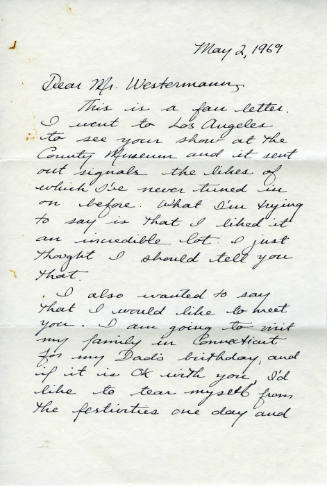 May 2, 1969
Dear Mr. Westermann,
This is a fan letter.
I went to Los Angeles
to see your show at the
County Museum and it sent
out signals the likes of
which I've never tuned in
on before. What I'm trying
to say is that I liked it
an incredible lot. I just
thought I should tell you
that.
I also wanted to say
that I would like to meet
you. I am going to visit
my family in Connecticut
for my Dad's birthday, and
if it is OK with you, I'd
like to tear myself from
the festivities one day and